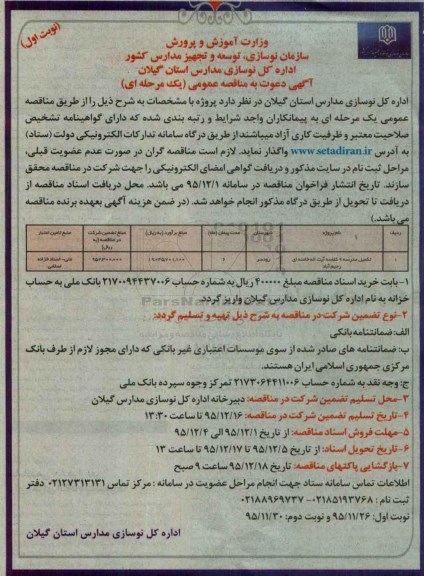 (نوبت اول)
وزارت آموزش و پرورش
سازمان نوسازی، توسعه و تجهیز مدارس کشور
اداره کل نوسازی مدارس استان گیلان
آگهی دعوت به مناقصه عمومی (یک مرحله ای)
اداره کل نوسازی مدارس استان گیلان در نظر دارد پروژه با مشخصات به شرح ذیل را از طریق مناقصه
عمومی یک مرحله ای به پیمانکاران واجد شرایط و رتبه بندی شده که دارای گواهینامه تشخیص
صلاحیت معتبر و ظرفیت کاری آزاد میباشند از طریق درگاه سامانه تدارکات الکترونیکی دولت (ستاد)
به آدرس www.setadiran.ir واگذار نماید. لازم است مناقصه گران در صورت عدم عضویت قبلی،
مراحل ثبت نام در سایت مذکور و دریافت گواهی امضای الکترونیکی را جهت شرکت در مناقصه محقق
سازند. تاریخ انتشار فراخوان مناقصه در سامانه ۹۵/۱۲/۱ می باشد. محل دریافت اسناد مناقصه از
دریافت تا تحویل از طریق درگاه مذکور انجام خواهد شد. (در ضمن هزینه آگهی بعهده برنده مناقصه
می باشد.)
ردیف نام پروژه شهرستان مدت پیمان (ماه) مبلغ برآورد (به ریال) مبلغ تضمین شرکت در مناقصه (به ریال) منبع تامین اعتبار
۱ تکمیل مدرسه ۶ کلاسه رودسر
۱-بابت خرید اسناد مناقصه مبلغ ۴۰۰۰۰۰ ریال به شماره حساب ۲۱۷۰۰۹۴۴۳۷۰۰۶ بانک ملی به حساب
خزانه به نام اداره کل نوسازی مدارس گیلان واریز گردد.
۲-نوع تضمین شرکت در مناقصه به شرح ذیل تهیه و تسلیم گردد:
الف: ضمانتنامه بانکی
ب: ضمانتنامه های صادر شده از سوی موسسات اعتباری غیر بانکی که دارای مجوز لازم از طرف بانک
مرکزی جمهوری اسلامی ایران هستند.
ج: وجه نقد به شماره حساب ۲۱۷۳۰۶۴۴۱۱۰۰۶ تمرکز وجوه سپرده بانک ملی
۳-محل تسلیم تضمین شرکت در مناقصه: دبیرخانه اداره کل نوسازی مدارس گیلان
۴-تاریخ تسلیم تضمین شرکت در مناقصه: ۹۵/۱۲/۱۶ تا ساعت ۱۳:۳۰
۵-مهلت فروش اسناد مناقصه: از تاریخ ۹۵/۱۲/۱ الی ۹۵/۱۲/۴
۶-تاریخ تحویل اسناد: از تاریخ ۹۵/۱۲/۵ تا ۹۵/۱۲/۱۷ تا ساعت ۱۳
۷-بازگشایی پاکتهای مناقصه: تاریخ ۹۵/۱۲/۱۸ ساعت ۹ صبح
اطلاعات تماس سامانه ستاد جهت انجام مراحل عضویت در سامانه: مرکز تماس ۰۲۱۲۷۳۱۳۱۳۱ دفتر
ثبت نام: ۰۲۱۸۵۱۹۳۷۶۸-۰۲۱۸۸۹۶۹۷۳۷
نوبت اول: ۹۵/۱۱/۲۶ و نوبت دوم: ۹۵/۱۱/۳۰
اداره کل نوسازی مدارس استان گیلان